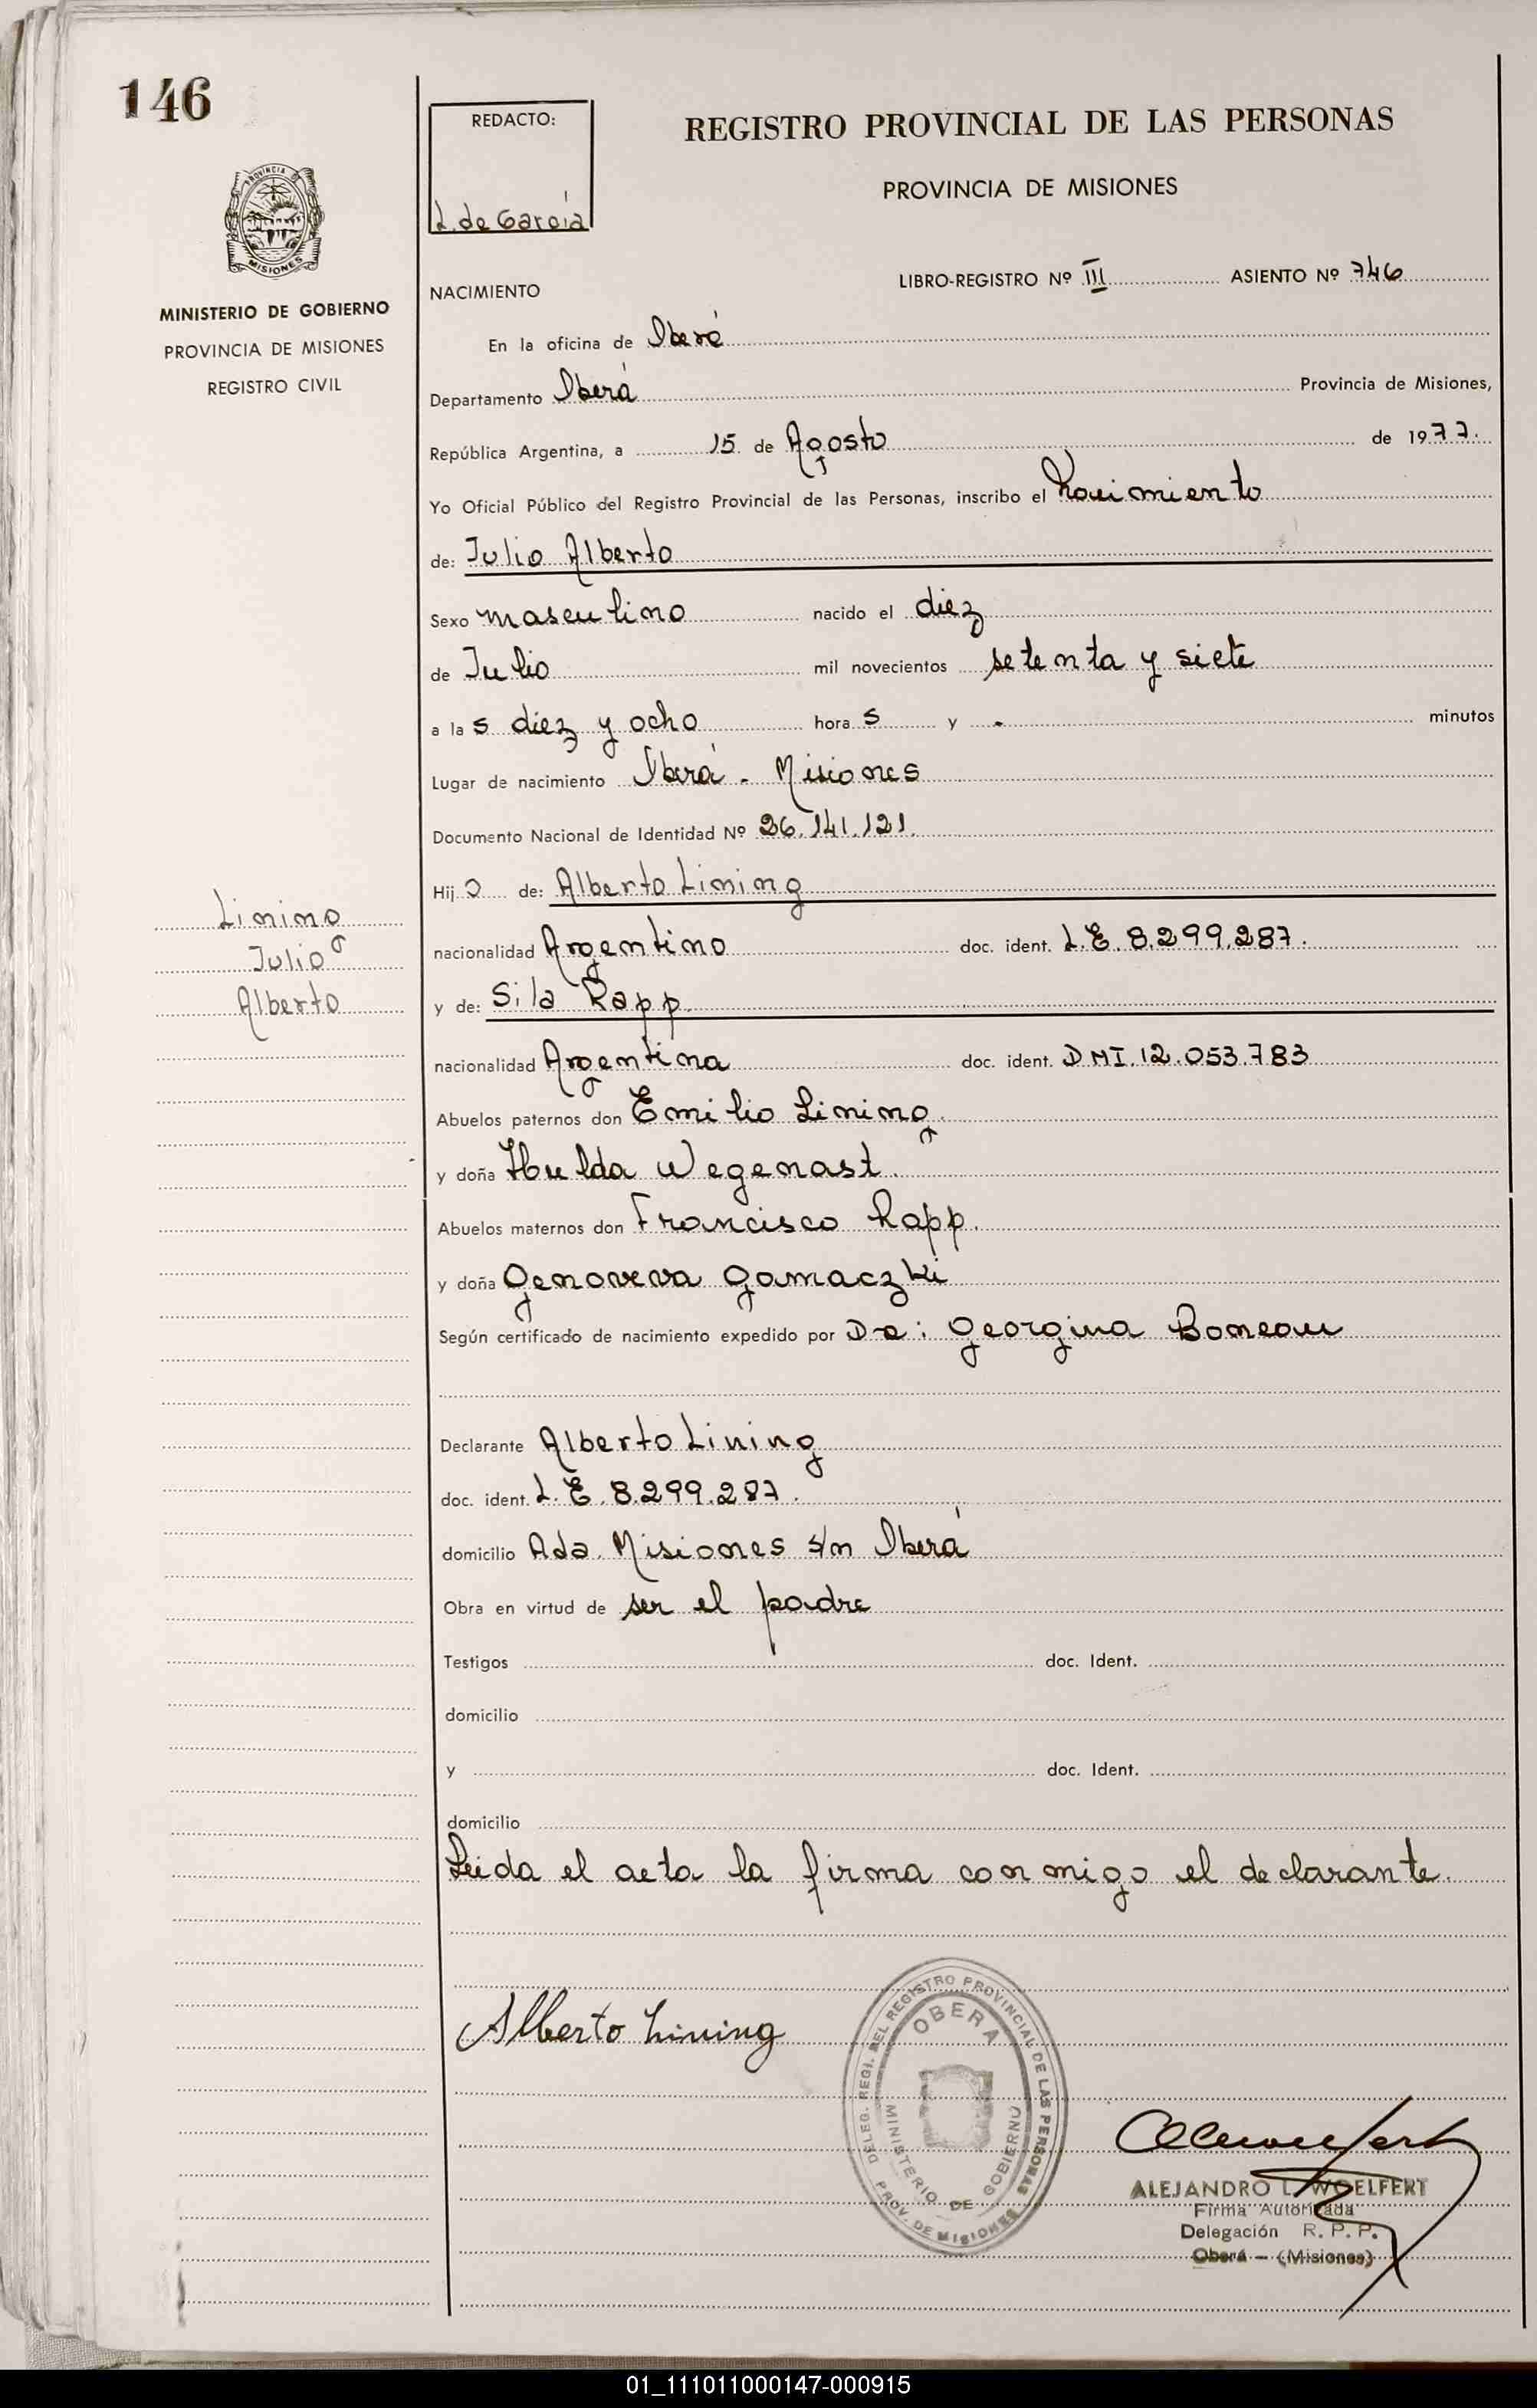 146
REDACTO:
L. de García
REGISTRO PROVINCIAL DE LAS PERSONAS
PROVINCIA DE MISIONES
MINISTERIO DE GOBIERNO
PROVINCIA DE MISIONES
REGISTRO CIVIL
LIBRO-REGISTRO Nº III ASIENTO Nº 746
NACIMIENTO
En la oficina de Oberá
Departamento Oberá Provincia de Misiones,
República Argentina, a 15 de Agosto de 1977.
Yo Oficial Público del Registro Provincial de las Personas, inscribo el Nacimiento
de: Julio Alberto
Sexo masculino nacido el diez
de Julio mil novecientos setenta y siete
a las diez y ocho horas y - minutos
Lugar de nacimiento Oberá - Misiones
Documento Nacional de Identidad Nº 26.141.121.
Hijo de: Alberto Lining
Lining
Julio
Alberto
nacionalidad Argentino doc. ident. L.E. 8.299.287.
y de: Sila Rapp.
nacionalidad Argentina doc. ident. DNI. 12.053.783
Abuelos paternos don Emilio Lining.
y doña Hulda Wegenast.
Abuelos maternos don Francisco Rapp.
y doña Genoveva Gamaczki
Según certificado de nacimiento expedido por Georgina
Declarante Alberto Lining
doc. ident. L.E. 8.299.287.
domicilio Ada. Misiones s/n Oberá
Obra en virtud de ser el padre
Testigos doc. Ident.
domicilio
y doc. Ident.
domicilio
Leida el acta la firma conmigo el declarante.
Alberto Lining
DELEG. REGI. DEL REGISTRO PROVINCIAL DE LAS PERSONAS
OBERA
MINISTERIO DE GOBIERNO
PROV. DE MISIONES
ALEJANDRO L. WOELFERT
Firma Autorizada
Delegación R. P. P.
Oberá - (Misiones)
01_111011000147-000915